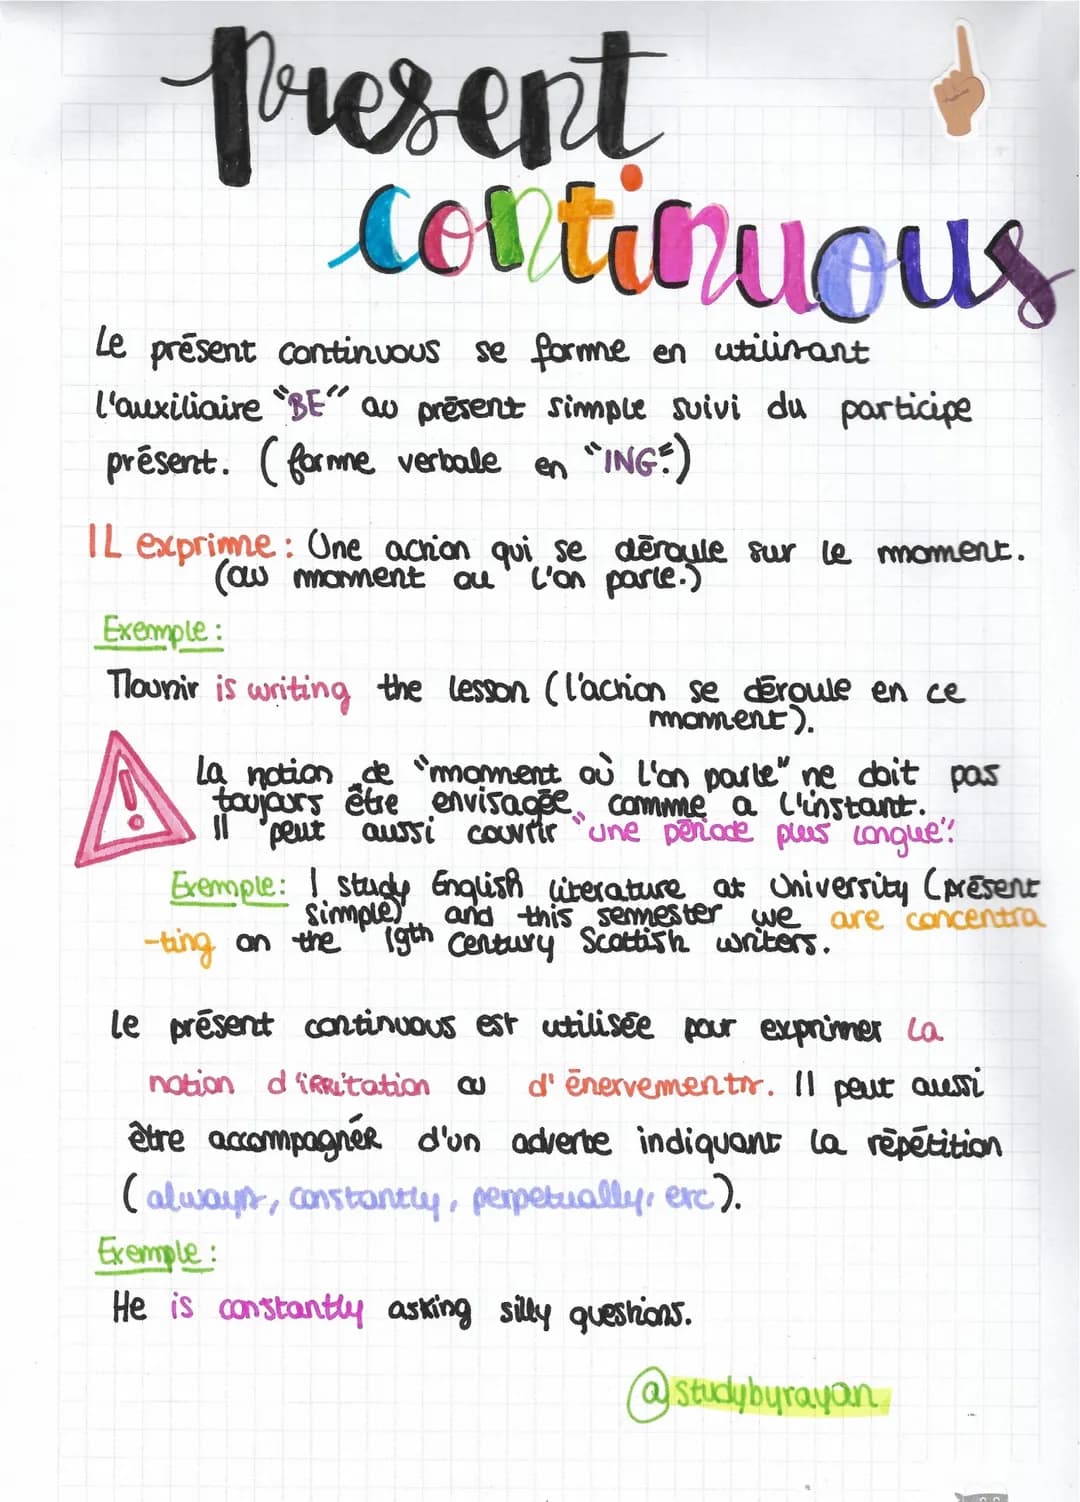 Present
continuous
Le présent continuous se forme en utilisant
l'auxiliaire "BE" au présent simple suivi du participe
présent. (forme verbale en "ING".)
IL exprime : Une action qui se déroule sur le moment.
(au moment ou l'on parle.)
Exemple :
Mounir is writing the lesson (l'action se déroule en ce
moment).
La notion de "moment où l'on parle" ne doit pas
toujours être envisagée comme a l'instant.
Il peut aussi couvrir "une période plus longue".
Exemple : I study English literature at University (présent
simple) and this semester we are concentra
-ting on the 19th Century Scottish writers.
Le présent continuous est utilisée pour exprimer la
notion d'irritation ou d'énervements. Il peut aussi
être accompagnér d'un adverbe indiquant la répétition
(always, constantly, perpetually, etc).
Exemple :
He is constantly asking silly questions.
@studybyrayan